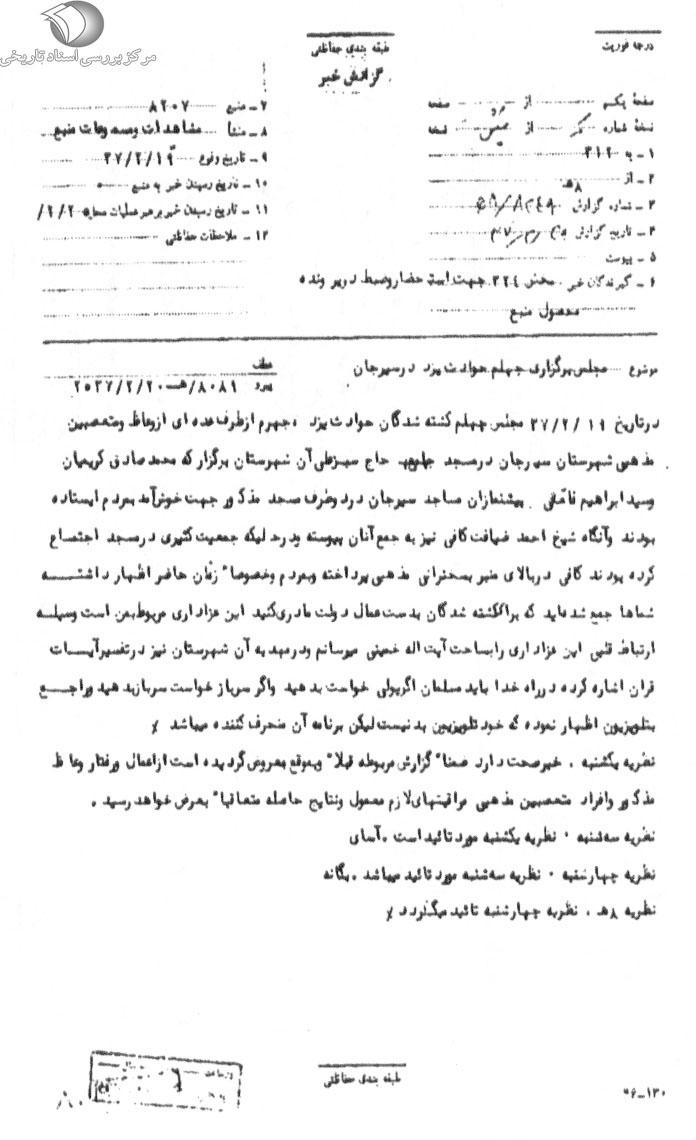 مرکز بررسی اسناد تاریخی
درجه فوریت
طبقه بندی حفاظتی
گزارش خبر
صفحهٔ یکم از صفحه
نسخهٔ شماره از نسخه
۱ ـ به ۳۱۲
۲ ـ از ۸ هـ
۳ ـ شماره گزارش
۴ ـ تاریخ گزارش
۵ ـ پیوست
۶ ـ گیرندگان خبر بخش ۳۲۴ جهت استحضار وضبط در پرونده
محصول منبع
۷ ـ منبع ۸۲۰۷
۸ ـ منشأ مشاهدات ومسموعات منبع
۹ ـ تاریخ وقوع ۳۷/۲/۱۹
۱۰ ـ تاریخ رسیدن خبر به منبع
۱۱ ـ تاریخ رسیدن خبر برهبر عملیات
۱۲ ـ ملاحظات حفاظتی
موضوع مجلس برگزاری چهلم حوادث یزد درسیرجان
عطف
پیرو ۸۰۸۱/هـ ۲۵۳۷/۲/۲۰
درتاریخ ۳۷/۲/۱۹ مجلس چهلم کشته شدگان حوادث یزد ، جهرم ازطرف عده ای ازوعاظ ومتعصبین
مذهبی شهرستان سیرجان درمسجد حاج سبزعلی آن شهرستان برگزار که محمد صادق کریمیان
وسید ابراهیم پیشنمازان مساجد سیرجان دردوطرف مسجد مذکور جهت خوش آمد بمردم ایستاده
بودند وآنگاه شیخ احمد ضیافت کافی نیز به جمع آنان پیوسته ودرحالیکه جمعیت کثیری درمسجد اجتماع
کرده بودند کافی دربالای منبر بسخنرانی مذهبی پرداخته وبمردم وخصوصا" زنان حاضر اظهار داشته
شماها جمع شده اید که برای کشته شدگان بدست عمال دولت عزاداری کنید این عزاداری مربوط بمن است وسیله
ارتباط قلبی این عزاداری را بساحت آیت اله خمینی میرسانم به آن شهرستان نیز درتفسیر آیات
قران اشاره کرده درراه خدا باید مسلمان اگرپولی خواست بدهید واگر سرباز خواست سرباز بدهید وراجع
بتلویزیون اظهار نموده که خود تلویزیون بد نیست لیکن برنامه آن منحرف کننده میباشد ٪
نظریه یکشنبه . خبرصحت دارد ضمنا" گزارش مربوطه قبلا" وبموقع بعروض گردیده است ازاعمال ورفتار وعاظ
مذکور وافراد متعصبین مذهبی مراقبتهای لازم معمول ونتایج حاصله متعاقبا" بعرض خواهد رسید .
نظریه سه شنبه . نظریه یکشنبه مورد تائید است . آسای
نظریه چهارشنبه . نظریه سه شنبه مورد تائید میباشد . یگانه
نظریه ۸ هـ . نظریه چهارشنبه تائید میگردد ٪
طبقه بندی حفاظتی